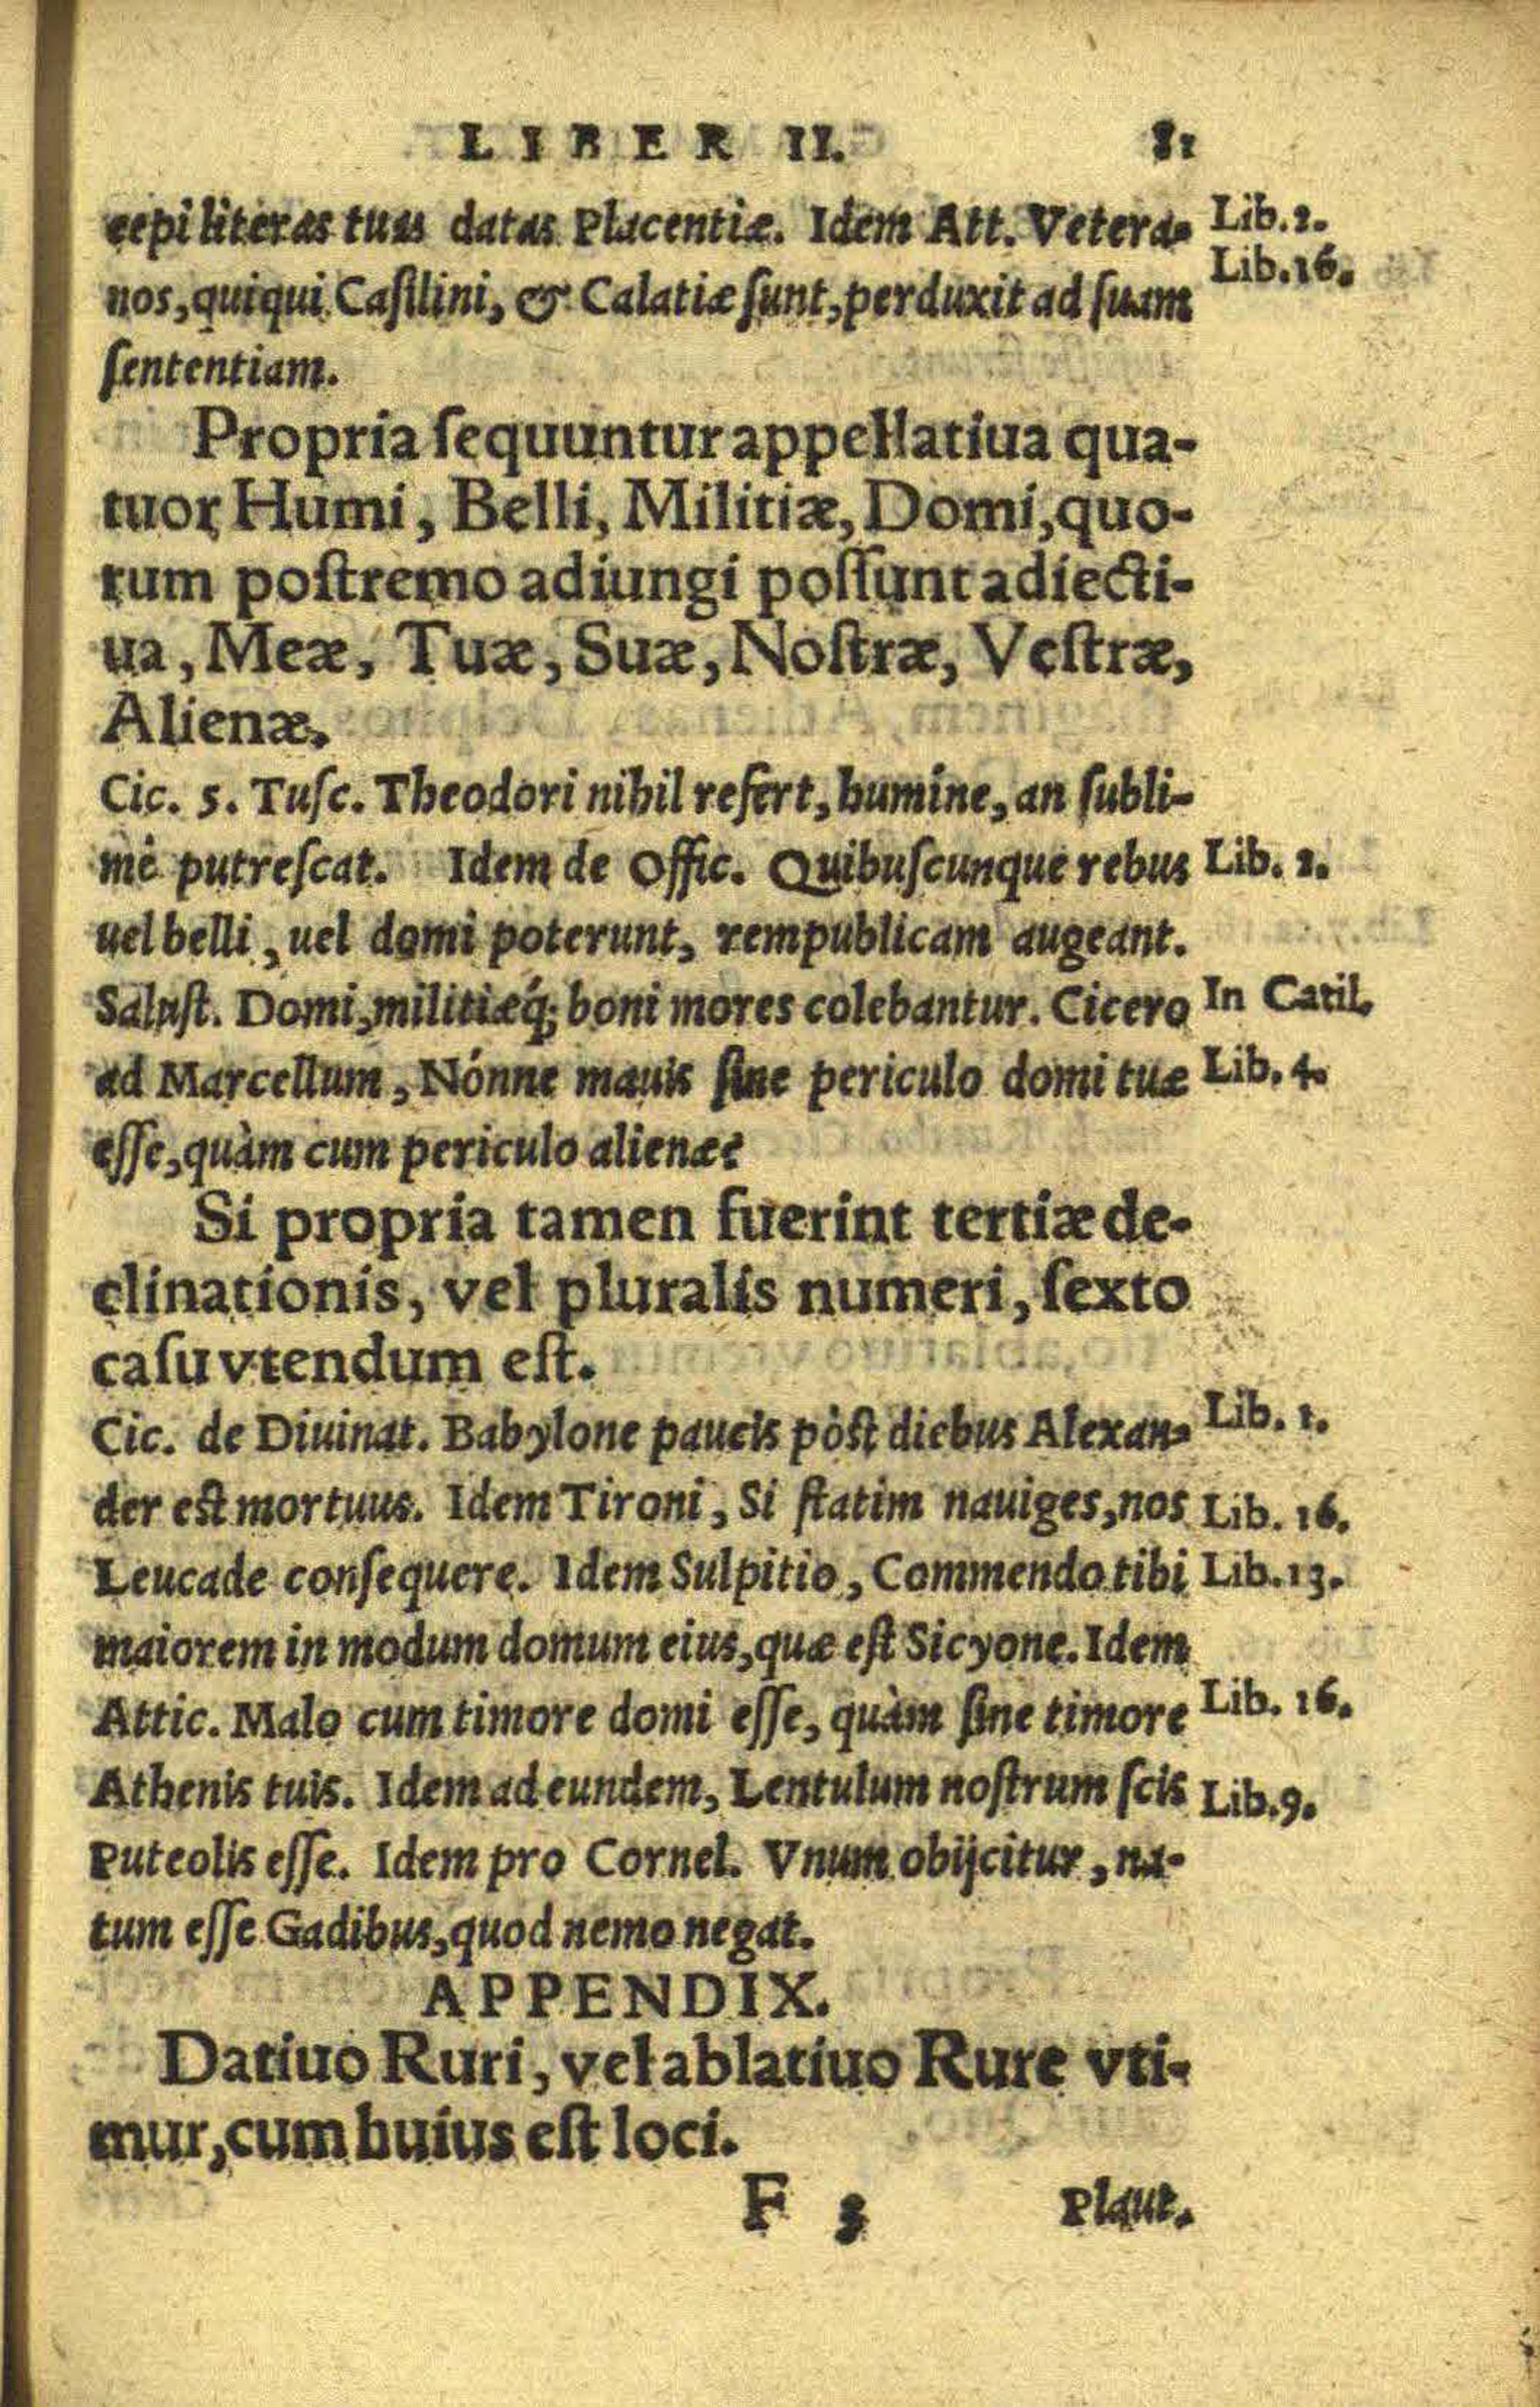 LIBER II. 81
cepi literas tuas datas Placentiæ. Idem Att. Vetera- Lib. 2.
nos, quiqui Casilini, & Calatiæ sunt, perduxit ad suam Lib. 16.
sententiam.
Propria sequuntur appellatiua qua-
tuor Humi, Belli, Militiæ, Domi, quo-
rum postremo adiungi possunt adiecti-
ua, Meæ, Tuæ, Suæ, Nostræ, Vestræ,
Alienæ.
Cic. 5. Tusc. Theodori nihil refert, humine, an subli-
mè putrescat. Idem de Offic. Quibuscunque rebus Lib. 2.
uel belli, uel domi poterunt, rempublicam augeant.
Salust. Domi, militiæq́; boni mores colebantur. Cicero In Catil.
ad Marcellum, Nónne mauis sine periculo domi tuæ Lib. 4.
esse, quàm cum periculo alienæ?
Si propria tamen fuerint tertiæ de-
clinationis, vel pluralis numeri, sexto
casu vtendum est.
Cic. de Diuinat. Babylone paucis pòst diebus Alexan- Lib. 1.
der est mortuus. Idem Tironi, Si statim nauiges, nos Lib. 16.
Leucade consequere. Idem Sulpitio, Commendo tibi Lib. 13.
maiorem in modum domum eius, quæ est Sicyone. Idem
Attic. Malo cum timore domi esse, quàm sine timore Lib. 16.
Athenis tuis. Idem ad eundem, Lentulum nostrum scis Lib. 9.
Puteolis esse. Idem pro Cornel. Vnum obijcitur, na-
tum esse Gadibus, quod nemo negat.
APPENDIX.
Datiuo Ruri, vel ablatiuo Rure vti-
mur, cum huius est loci.
F 3 Plaut.